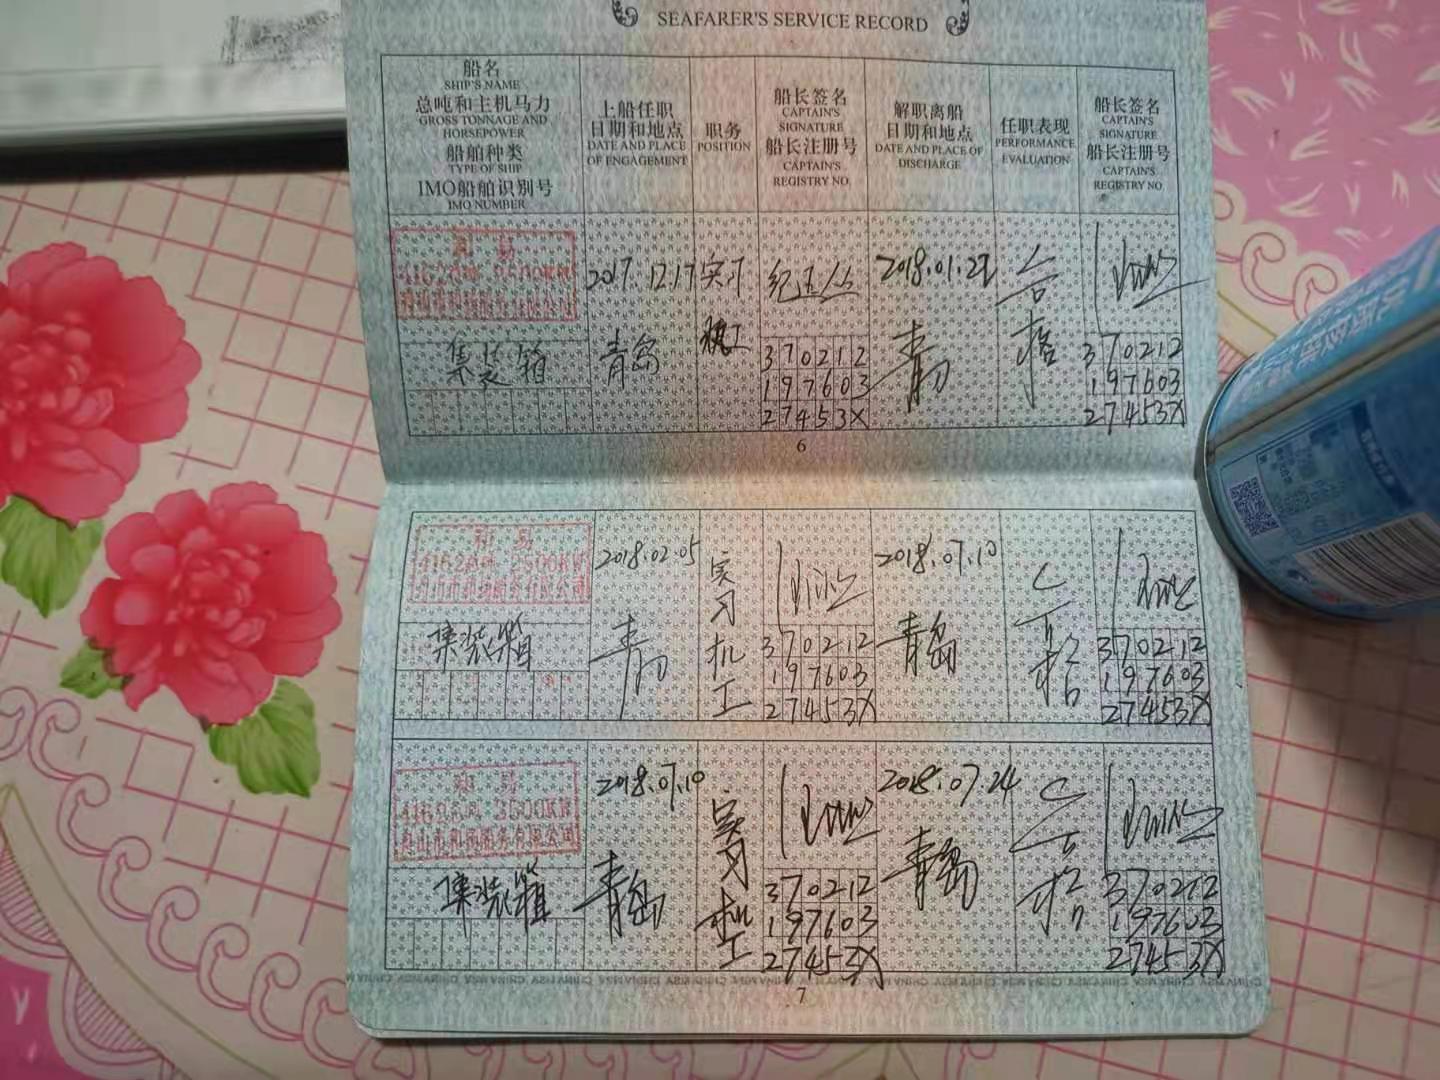 SEAFARER'S SERVICE RECORD
船名
SHIP'S NAME
总吨和主机马力
GROSS TONNAGE AND
HORSEPOWER
船舶种类
TYPE OF SHIP
IMO船舶识别号
IMO NUMBER
上船任职
日期和地点
DATE AND PLACE
OF ENGAGEMENT
职务
POSITION
船长签名
CAPTAIN'S
SIGNATURE
船长注册号
CAPTAIN'S
REGISTRY NO.
解职离船
日期和地点
DATE AND PLACE OF
DISCHARGE
任职表现
PERFORMANCE
EVALUATION
船长签名
CAPTAIN'S
SIGNATURE
船长注册号
CAPTAIN'S
REGISTRY NO.
集装箱
2017.12.17
青岛
实习
机工
370212
197603
27453X
2018.01.22
青岛
合格
370212
197603
27453X
6
和易
2500KW
集装箱
2018.02.05
青岛
实习机工
370212
197603
27453X
2018.07.10
青岛
合格
370212
197603
27453X
和易
集装箱
2018.07.10
青岛
实习机工
370212
197603
27453X
2018.07.24
青岛
合格
370212
197603
27453X
7